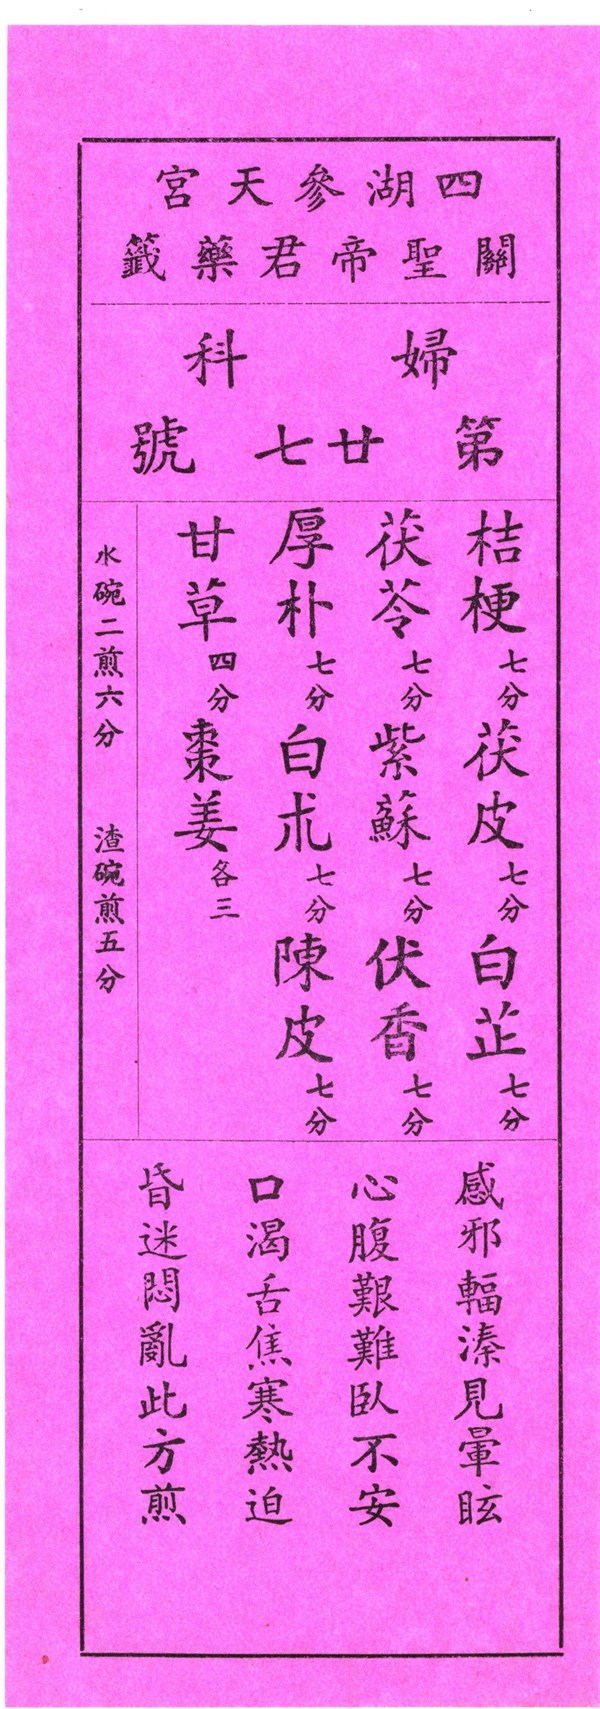 四湖參天宮
關聖帝君藥籤
婦科
第廿七號
桔梗七分茯皮七分白芷七分
茯苓七分紫蘇七分伏香七分
厚朴七分白朮七分陳皮七分
甘草四分棗姜各三
水碗二煎六分 渣碗煎五分
感邪輻溱見暈眩
心腹艱難臥不安
口渴舌焦寒熱迫
昏迷悶亂此方煎